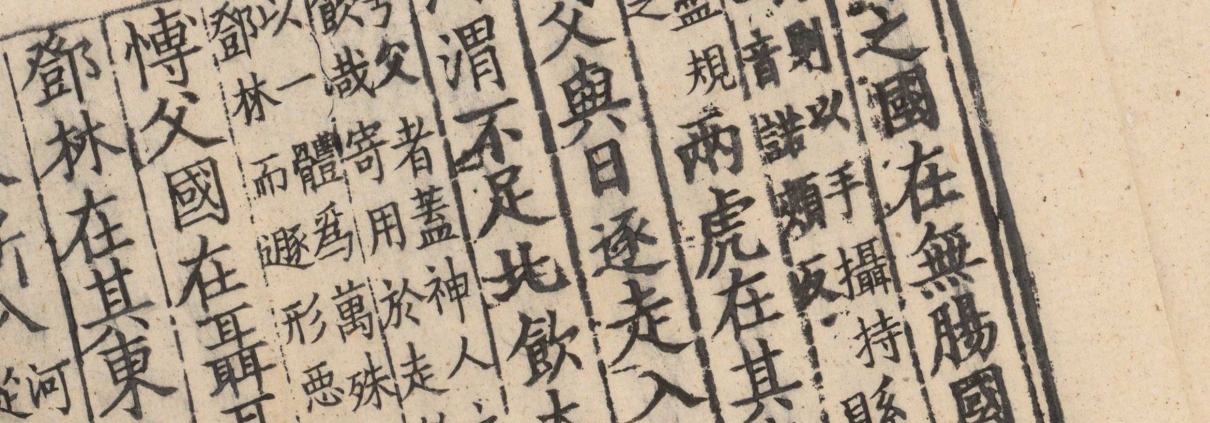 之國在無腸國
則以手攝持縣
音諾頰反
盡規
之
兩虎在其
父與日逐走入
渭不足北飲
父者蓋神人
飲哉寄用於走
以一體爲萬殊
鄧林而遯形惡
愽父國在聶耳
鄧林在其東
所入
河